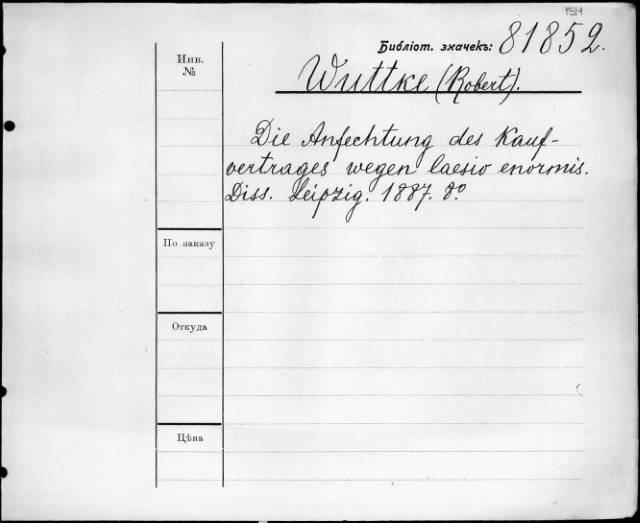 Библіот. значекъ: 81852.
Инв.
№
Wuttke (Robert).
Die Anfechtung des Kauf-
vertrages wegen laesio enormis.
Diss. Leipzig. 1887. 8°.
По заказу
Откуда
Цѣна